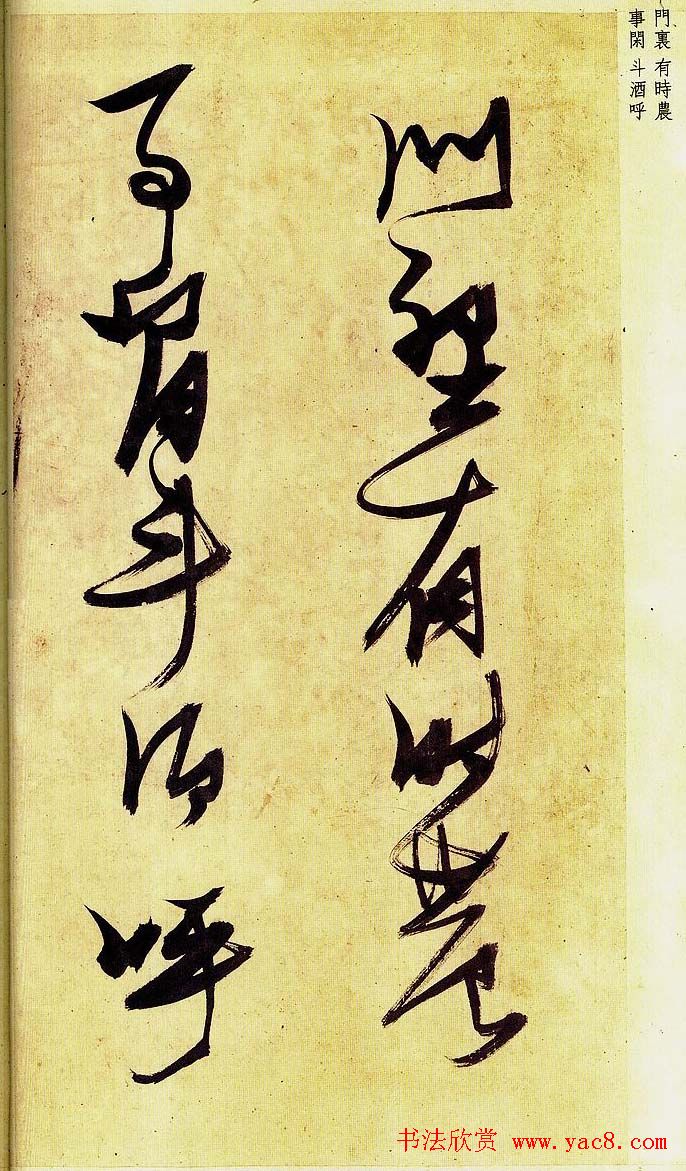 門裏 有時農
事閑 斗酒呼
門裏有時農
事閑斗酒呼
书法欣赏 www.yac8.com